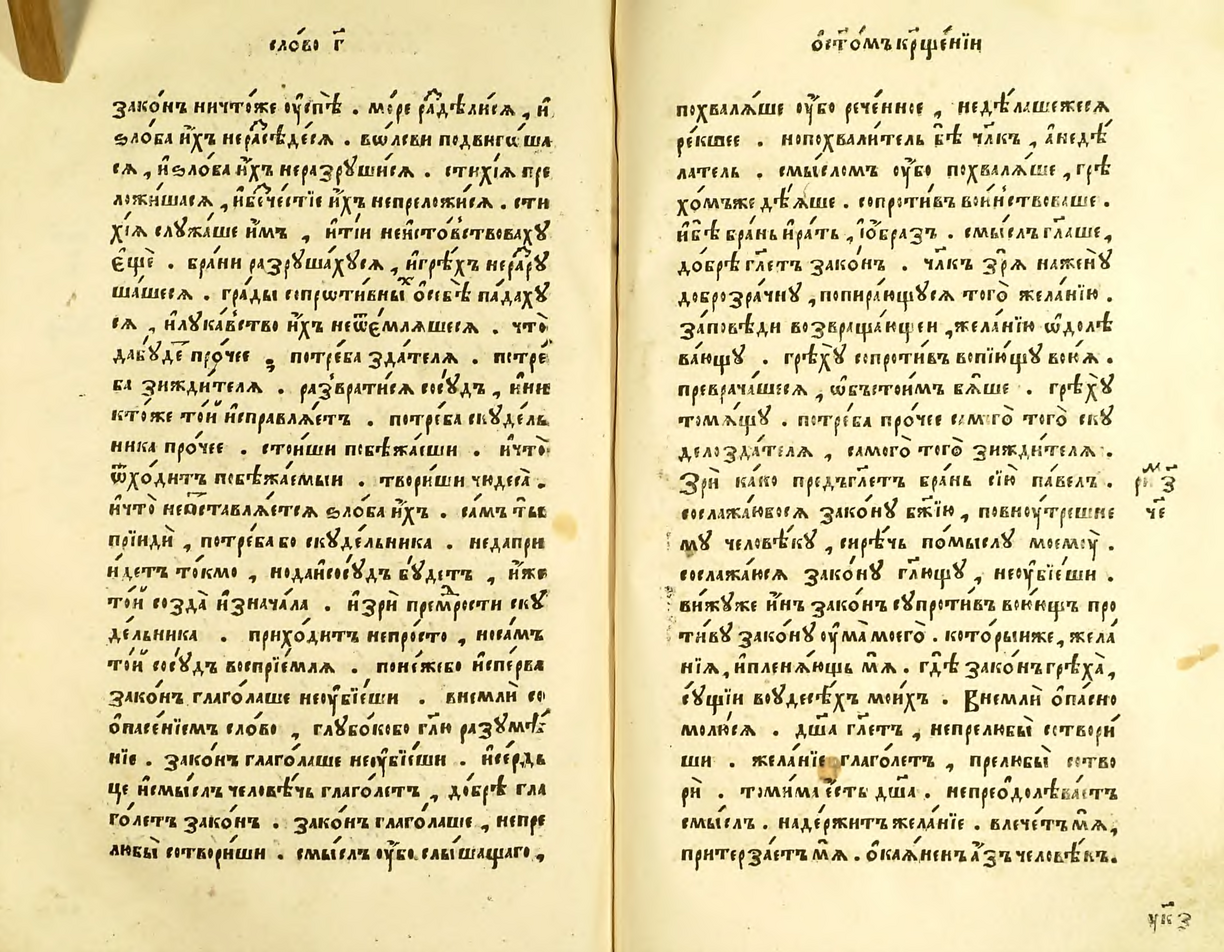 сло́во г҃
зако́нъ ничто́же ᲂу҆спѣ̀ . мо́ре раⷥдѣ́лисѧ , и҆
ѕло́ба и҆́хъ нераⷥсѣ́десѧ . во́лсви подвиго́ша
сѧ , и҆ѕло́ба и҆́хъ неразрꙋши́сѧ . стихі́ѧ пре
ложи́шасѧ , и҆беⷥче́стїе и҆́хъ непреложи́сѧ . сти
хі́ѧ слꙋжа́ше и҆́мъ , и҆ті́и неи́стовствовахꙋ
є҆щѐ . бра́ни разрꙋша́хꙋсѧ , и҆грѣ́хъ нераⷥрꙋ
ша́шесѧ . гра́ды сопрѡти́вныⷯ ѻ҆себѣ̀ па́дахꙋ
сѧ , и҆лꙋка́вство и҆́хъ неѿє́млѧшесѧ . что̀
дабꙋ́деⷮ про́чее ; потре́ба зда́телѧ . потре́
ба зижди́телѧ . разврати́сѧ сосꙋ́дъ , и҆ни
кто́же то́й и҆справлѧ́етъ . потре́ба скꙋде́ль
ника про́чее . стои́ши побѣжа́еши . и҆что̀
ѿхо́дитъ побѣжа́емыи . твори́ши чюдеса̀ .
и҆что̀ неѡ҆ставлѧ́етсѧ ѕло́ба и҆́хъ . са́мъ ты̀
прїидѝ , потре́ба бо скꙋде́льника . неда́при
и́детъ то́кмо , нода́исосꙋ́дъ бꙋ́детъ , и҆́же
то́й созда̀ и҆знача́ла . и҆зрѝ премⷣрости скꙋ
де́льника . прихо́дитъ непро́сто , носа́мъ
то́й сосꙋ́дъ воспрїе́млѧ . поне́жебо и҆спе́рва
зако́нъ глаго́лаше неᲂу҆бїе́ши . внемлѝ со
ѻ҆пасе́нїемъ сло́во , глꙋбо́кобо гл҃ю разꙋмѣ́
нїе . зако́нъ глаго́лаше неᲂу҆бїе́ши . и҆се́рдь
це и҆смы́слъ человѣ́чь глаго́летъ , до́брѣ гла
го́летъ зако́нъ . зако́нъ глаго́лаше , непре
любы̀ сотвори́ши . смы́слъ ᲂу҆́бо слы́шащаго ,
ѻ҆ст҃о́мъ крⷭ҇ще́нїи
похвалѧ́ше ᲂу҆́бо рече́нное , недѣ́лашежесѧ
ре́кшее . нопохвали́тель бѣ̀ чл҃къ , а҆недѣ́
латель . смы́сломъ ᲂу҆́бо похвалѧ́ше , грѣ
хо́мъже дѣ́ѧше . сопроти́въ во́инствоваше .
и҆бѣ̀ бра́нь и҆ра́ть , і҆ѻ҆́бразъ . смы́слъ гл҃аше ,
до́брѣ гл҃етъ зако́нъ . чл҃къ зрѧ̀ наженꙋ̀
доброзра́чнꙋ , попира́ющꙋсѧ того̀ жела́нїю .
за́повѣди возвраща́ющеи , жела́нїю ѡ҆долѣ
ва́ющꙋ . грѣхꙋ̀ сопроти́въ вопїю́щꙋ воюѧ .
превраща́шесѧ , ѡ҆бъстои́мъ бѧ́ше . грѣхꙋ̀
томѧ́щꙋ . потре́ба про́чее самого̀ того̀ скꙋ
делозда́телѧ , самого̀ того̀ зижди́телѧ .
Зрѝ ка́ко предъгл҃етъ бра́нь сїю̀ па́велъ .
сослажа́ювосѧ зако́нꙋ бж҃їю , повнꙋ́трешне
мꙋ̀ человѣ́кꙋ , си́рѣчь по́мыслꙋ моемꙋ̀ .
сослажа́юсѧ зако́нꙋ гл҃ющꙋ , неᲂу҆бїе́ши .
ви́жꙋже и҆́нъ зако́нъ сꙋпроти́въ вою́ющъ про
ти́вꙋ зако́нꙋ ᲂу҆ма̀ моего̀ . кото́рыиже , жела́
нїѧ , и҆плени́ющь мѧ̀ . гдѣ̀ зако́нъ грѣха̀ ,
сꙋ́щїи воꙋ́десѣхъ мои́хъ . Внемлѝ ѻ҆па́сно
молю́сѧ . дш҃а̀ гл҃етъ , непрелюбы̀ сотвори́
ши . жела́нїе глаго́летъ , прелюбы̀ сотво
рѝ . томи́ма є҆́сть дш҃а̀ . непреодолѣва́етъ
смы́слъ . наде́ржитъ жела́нїе . влече́тъ мѧ̀ ,
притерза́етъ мѧ̀ . ѻ҆кая́ненъ а҆́зъ человѣ́къ .
че